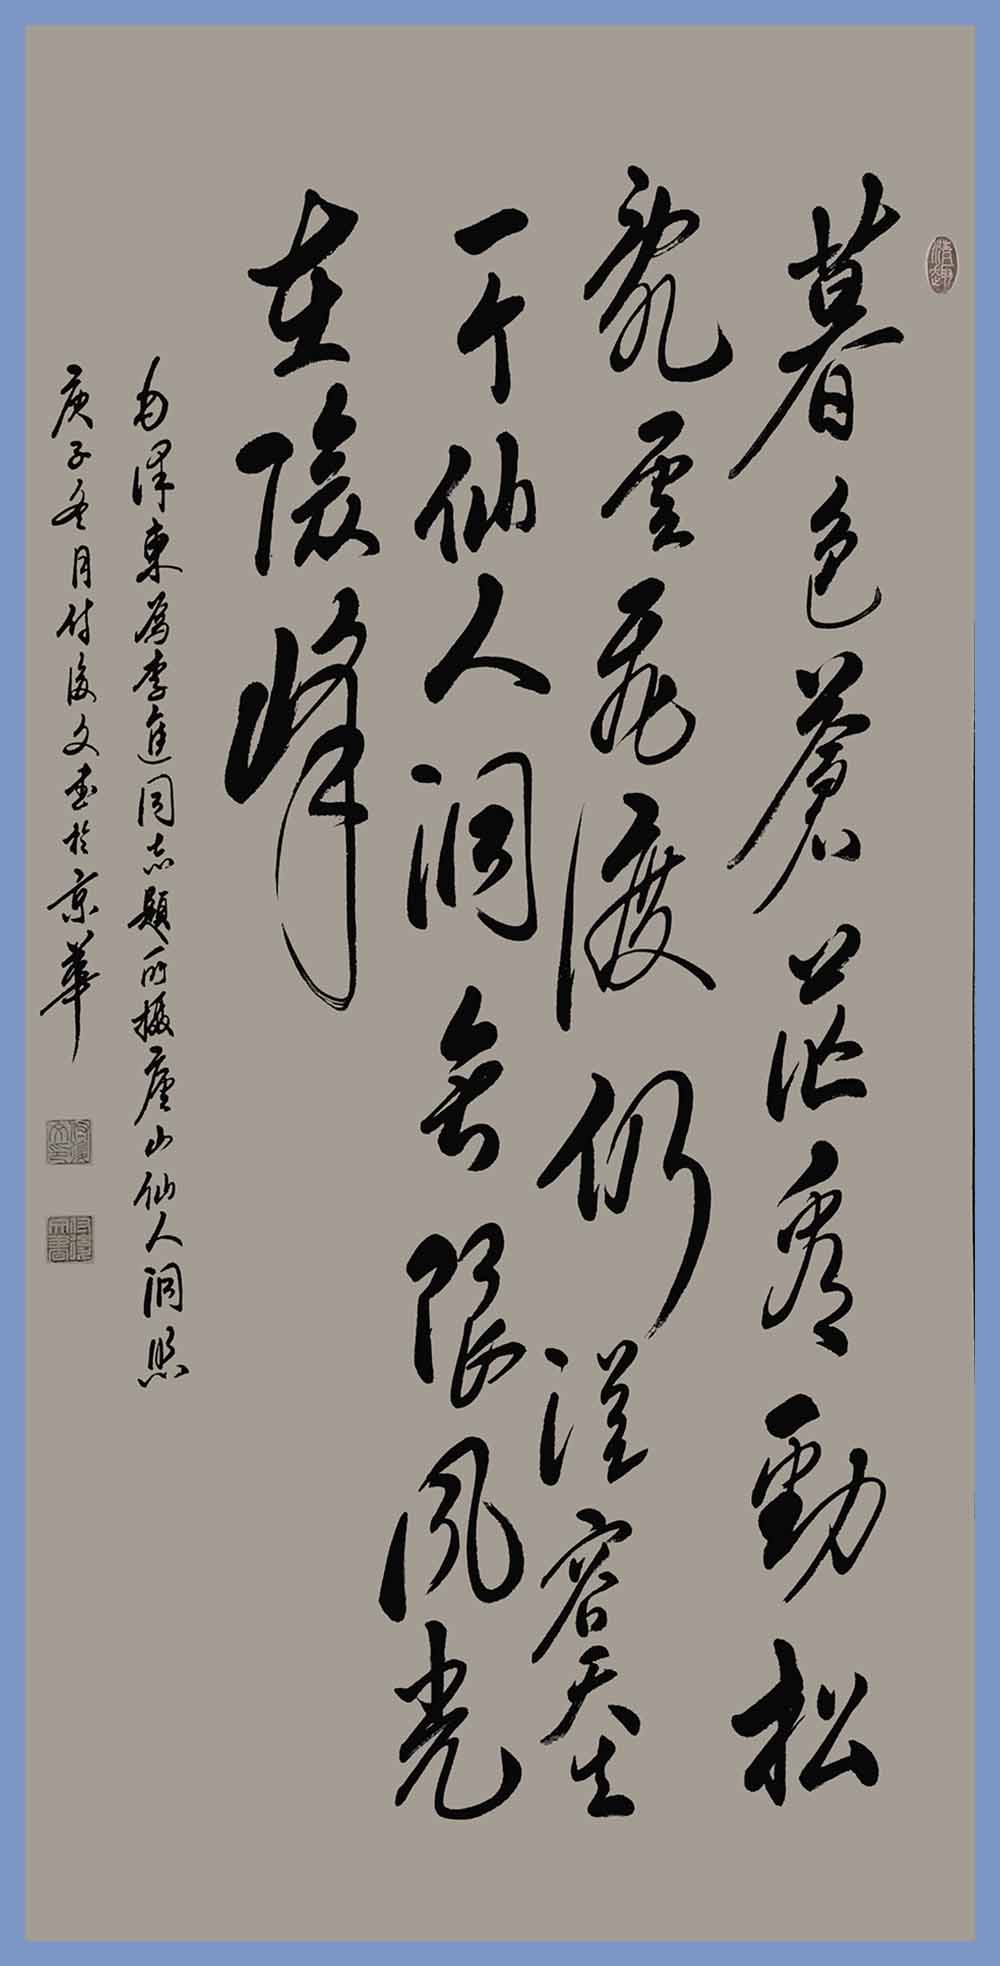 清趣
暮色蒼茫看勁松
亂雲飛渡仍從容天生
一个仙人洞無限風光
在險峰
毛澤東為李進同志題所攝廬山仙人洞照
庚子冬月付文書於京華